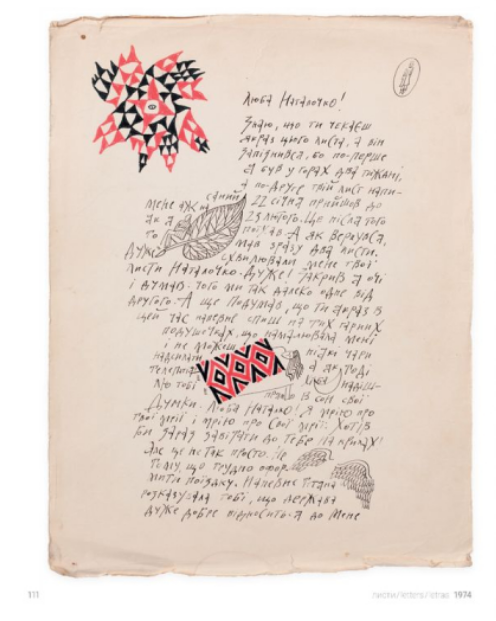 Люба Наталочко!
Знаю, що ти чекаєш
якраз цього листа, а він
запізнився, бо по-перше
я був у горах два тижні,
а по-друге твій лист напи-
саний 22 січня прийшов до
мене аж 23 лютого. Це після того
як я поїхав. А як вернувся,
то мав зразу два листи.
Дуже схвилювали мене твої
листи Наталочко. Дуже! Закрив я очі
і думав. Чого ми так далеко одне від
другого. А ще подумав, що ти якраз в
цей час напевне спиш на тих гарних
подушочках, що намалювала мені
і не можеш
надсилати
телепати
лю тобі надси-
прямо в сон свої
Думки. Люба Наталю! Я мрію про
твої мрії і мрію про свої мрії. Хотів
би зараз завітати до тебе на крилах!
Але це не так просто. Не
тому, що трудно офор-
мити поїздку. Напевне Тетяна
розказувала тобі, що держава
дуже добре відноситься до мене
111
листи/letters/letras 1974